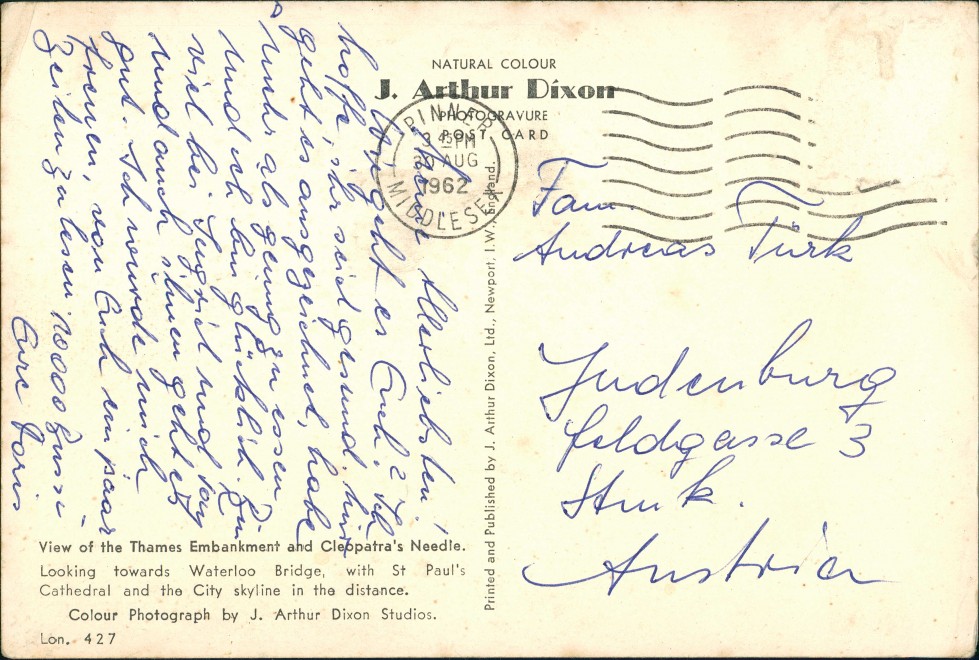 NATURAL COLOUR
J. Arthur Dixon
PHOTOGRAVURE
POST CARD
PINNER
3 45 PM
30 AUG
1962
MIDDLESEX
Meine Allerliebsten!
Wie geht es Euch? Ich
hoffe, ihr seid gesund, mir
geht es ausgezeichnet, habe
nichts als genug zu essen
und ich bin glücklich. Bin
viel bei Ingrid und Tony
und auch ihnen geht es
gut. Ich würde mich
freuen, von Euch ein paar
Zeilen zu lesen. 10000 Bussi
Eure Doris
Fam.
Andreas Türk
Judenburg
Feldgasse 3
Stmk.
Austria
Printed and Published by J. Arthur Dixon, Ltd., Newport, I.W., England.
View of the Thames Embankment and Cleopatra's Needle.
Looking towards Waterloo Bridge, with St Paul's
Cathedral and the City skyline in the distance.
Colour Photograph by J. Arthur Dixon Studios.
Lon. 427